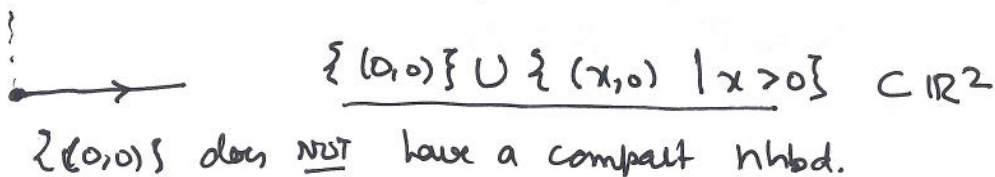 {(0,0)} ∪ {(x,0) | x>0} ⊂ ℝ²
{(0,0)} does NOT have a compact nhbd.